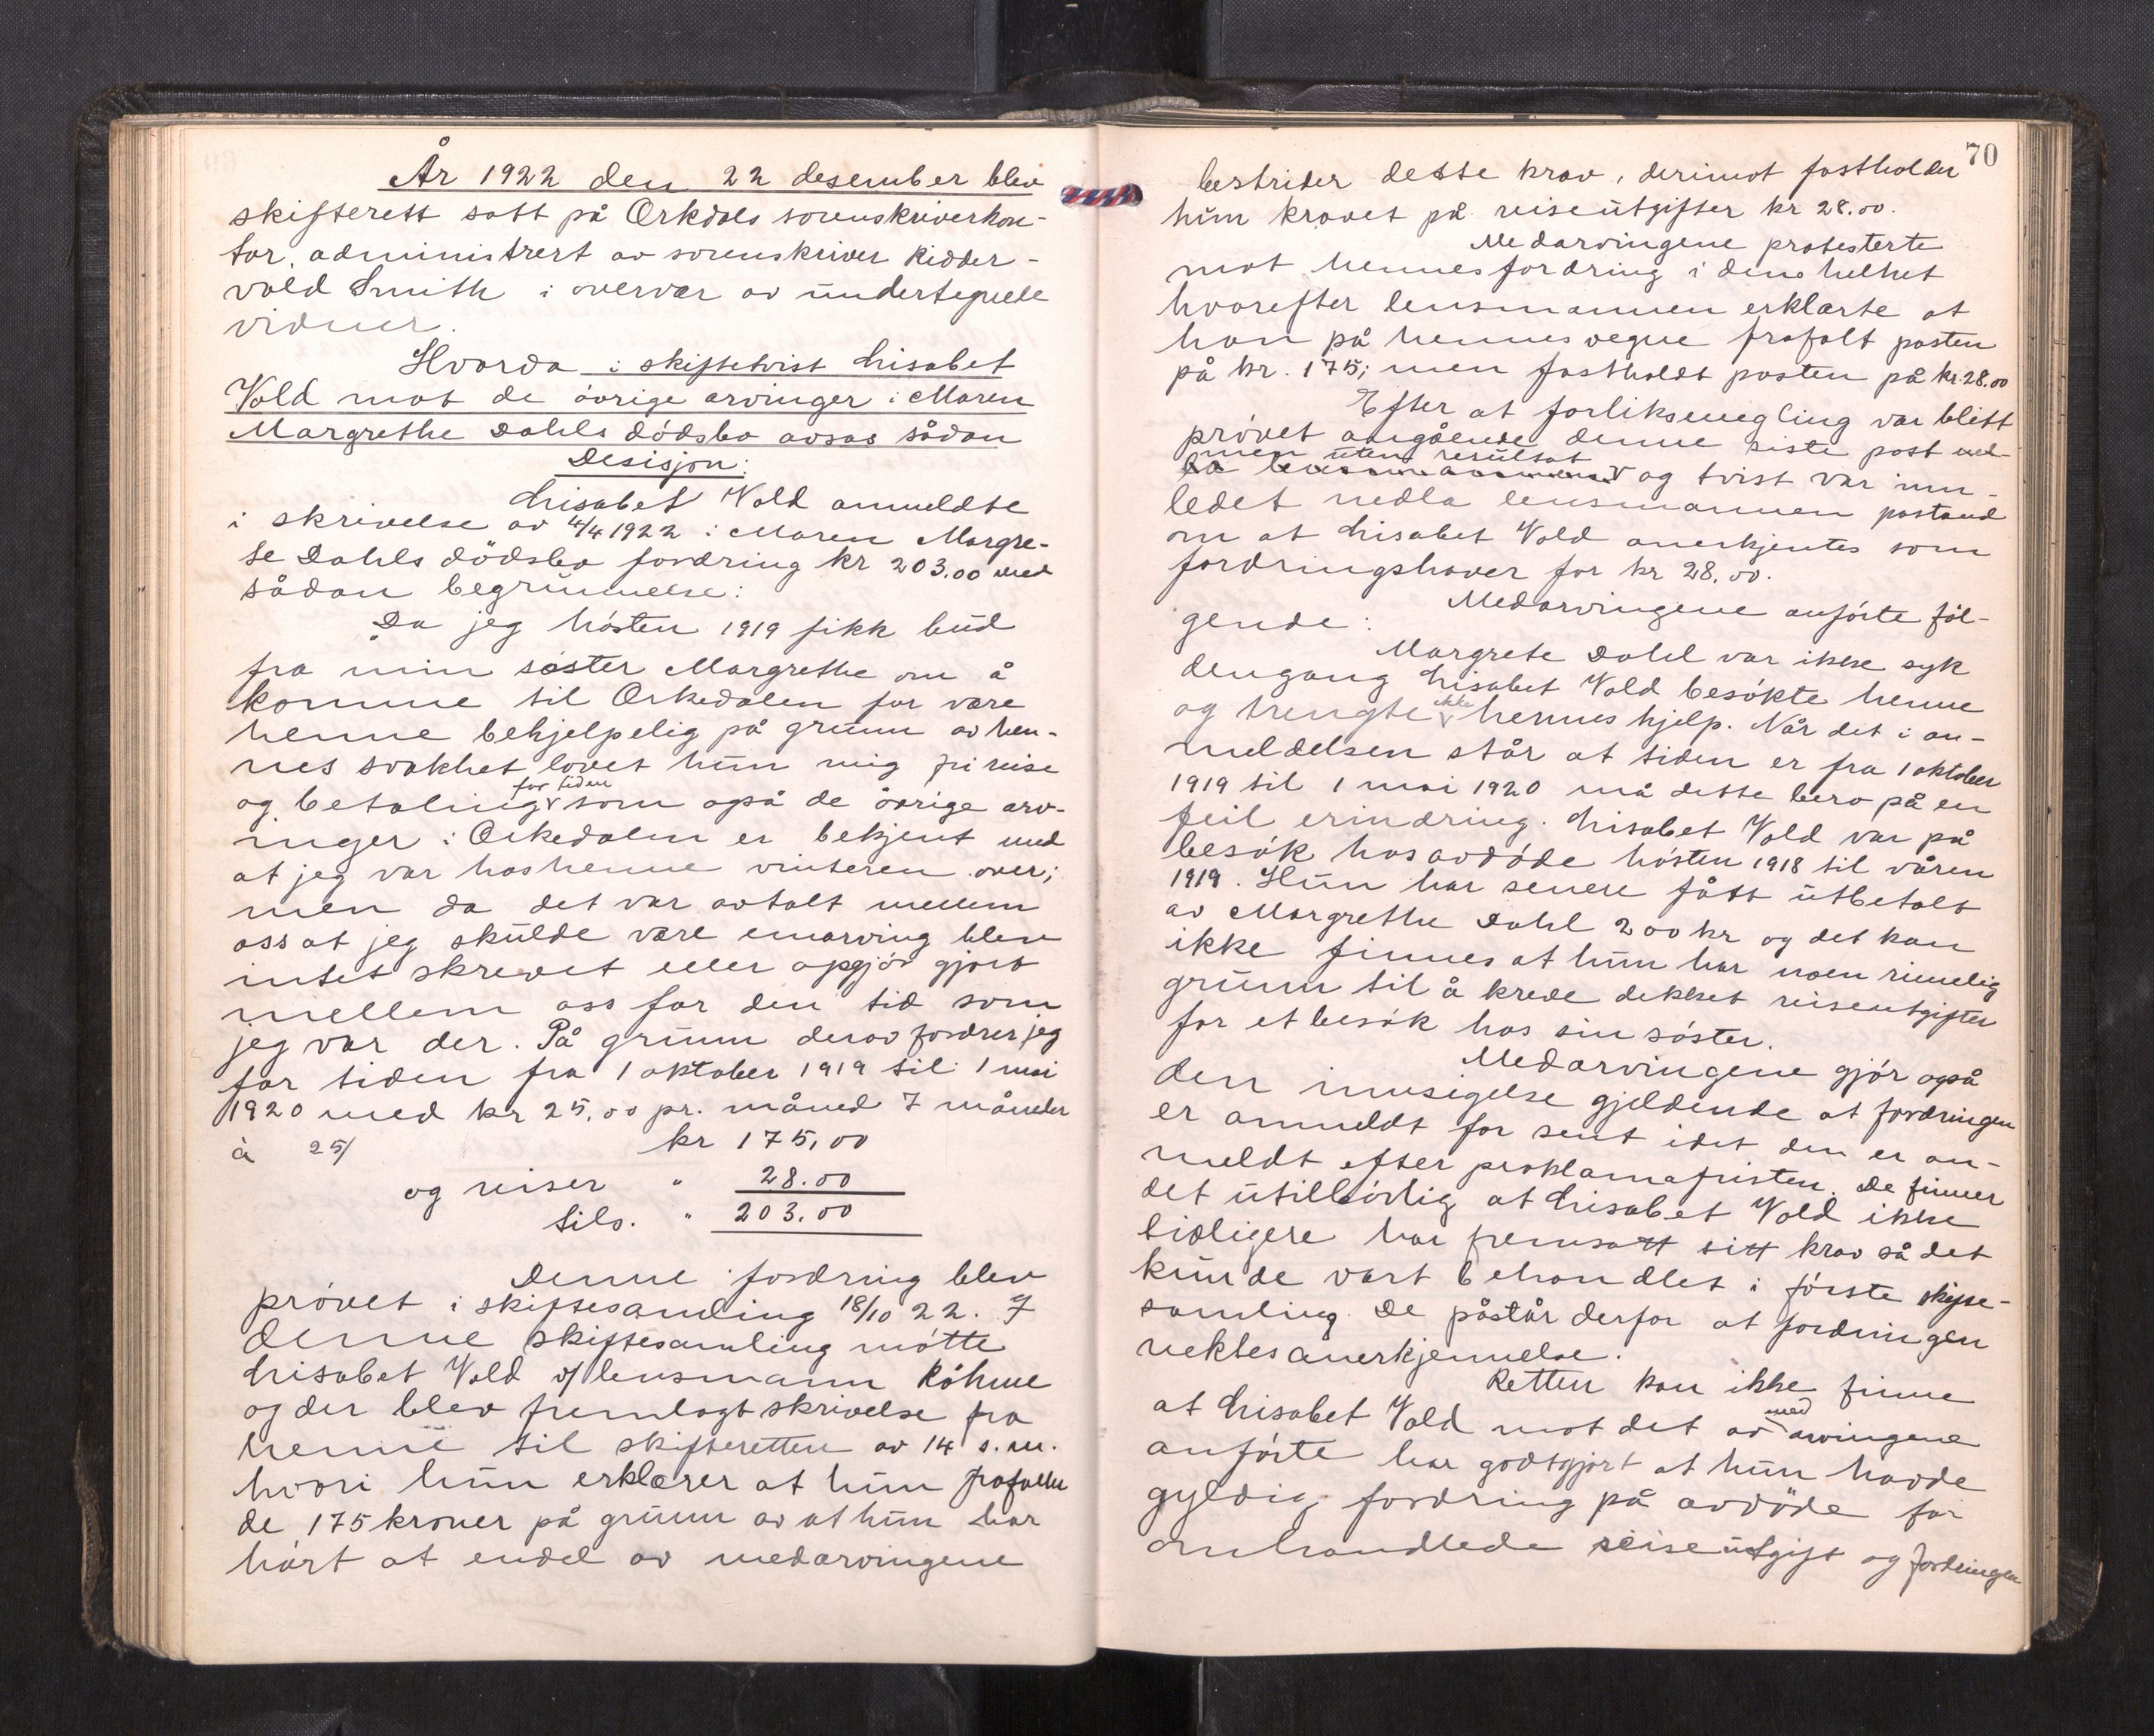 År 1922 den 22 desember blev
skifterett satt på Orkdals sorenskriverkon-
tor, administrert av sorenskriver Ridder-
vold Smith i overvær av undertegnede
vidner.
Hvorda i skiftetvist Lisabet
Vold mot de övrige arvinger i Maren
Margrethe Dahls dödsbo avsas sådan
Desisjon:
Lisabet Vold anmeldte
i skrivelse av 4/4 1922 i Maren Margre-
te Dahls dödsbo fordring kr 203.00 med
sådan begrunnelse:
Da jeg hösten 1919 fikk bud
fra min söster Margrethe om å
komme til Orkedalen for være
henne behjelpelig på grunn av hen-
nes svakhet lovet hun mig fri reise
for tiden
og betaling som også de övrige arv-
inger i Orkedalen er bekjent med
at jeg var hos henne vinteren over;
men da det var avtalt mellem
oss at jeg skulde være enarving blev
intet skrevet eller opgjör gjort
mellem oss for den tid som
jeg var der. På grunn derav fordrer jeg
for tiden fra 1 oktober 1919 til 1 mai
1920 med kr 25,00 pr. måned 7 måneder
à 25/ kr 175,00
og reiser " 28.00
tils. " 203.00
Denne fordring blev
prövet i skiftesamling 18/10 22. I
denne skiftesamling mötte
Lisabet Vold v/ lensmann Röhme
og der blev fremlagt skrivelse fra
henne til skifteretten av 14 s.m.
hvori hun erklærer at hun frafaller
de 175 kroner på grunn av at hun har
hört at endel av medarvingene
70
bestrider dette krav, derimot fastholder
hun kravet på reiseutgifter kr 28.00.
Medarvingene protesterte
mot hennes fordring i dens helhet
hvorefter lensmannen erklærte at
han på hennes vegne frafalt posten
på kr. 175; men fastholdt posten på kr. 28.00
Efter at forliksmegling var blitt
prövet angående denne siste post
men uten resultat
og tvist var inn-
ledet nedla lensmannen påstand
om at Lisabet Vold anerkjentes som
fordringshaver for kr 28.00.
Medarvingene anförte föl-
gende:
Margrete Dahl var ikke syk
dengang Lisabet Vold besökte henne
ikke
og trengte hennes hjelp. Når det i an-
meldelsen står at tiden er fra 1 oktober
1919 til 1 mai 1920 må dette bero på en
feil erindring. Lisabet Vold var på
besök hos avdöde hösten 1918 til våren
1919. Hun har senere fått utbetalt
av Margrethe Dahl 200 kr og det kan
ikke finnes at hun har noen rimelig
grunn til å kreve dekket reiseutgifter
for et besök hos sin söster.
Medarvingene gjör også
den innsigelse gjeldende at fordringen
er anmeldt for sent idet den er an-
meldt efter proklamafristen. De finner
det utilbörlig at Lisabet Vold ikke
tidligere har fremsatt sitt krav så det
kunde vært behandlet i förste skifte-
samling. De påstår derfor at fordringen
nektes anerkjennelse.
Retten kan ikke finne
med
at Lisabet Vold mot det av arvingene
anförte har godtgjort at hun havde
gyldig fordring på avdöde for
omhandlede reiseutgift og fordringen